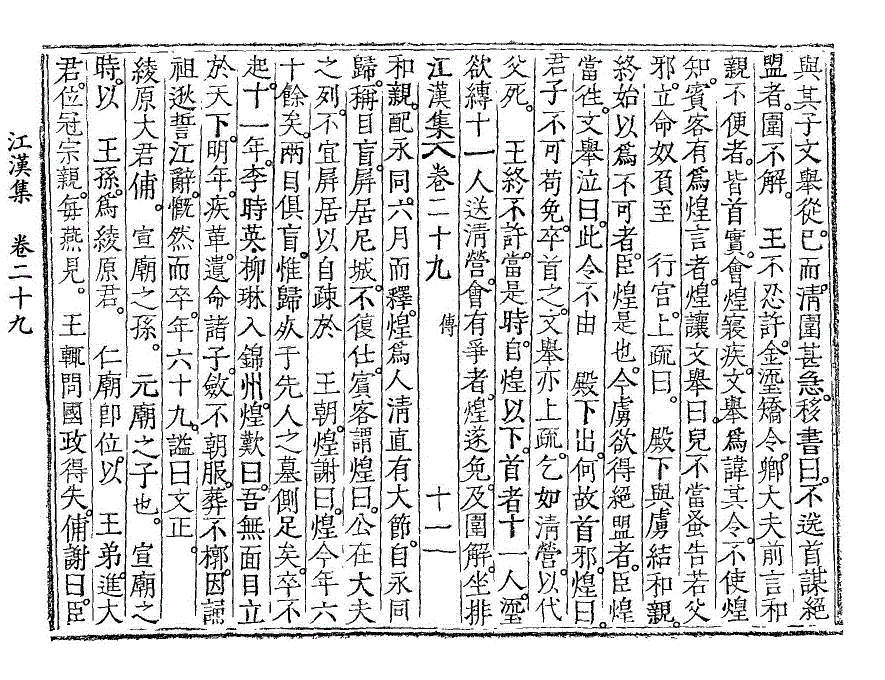 與其子文舉從。已而淸圍甚急。移書曰。不送首謀絕
盟者。圍不解。 王不忍許。金瑬矯令。鄕大夫前言和
親不便者。皆首實。會煌寢疾。文舉爲諱其令。不使煌
知。賓客有爲煌言者。煌讓文舉曰。兒不當蚤告若父
邪。立命奴負至 行宮上疏曰。 殿下與虜結和親。
終始以爲不可者。臣煌是也。今虜欲得絕盟者。臣煌
當徃。文舉泣曰。此令不由 殿下出。何故首邪。煌曰。
君子不可苟免。卒首之。文舉亦上疏。乞如淸營。以代
父死。 王終不許。當是時。自煌以下。首者十一人。瑬
欲縛十一人送淸營。會有爭者。煌遂免。及圍解。坐排
江漢集 卷二十九 傳 十一
和親。配永同。六月而釋。煌爲人淸直有大節。自永同
歸。稱目盲。屛居尼城。不復仕。賓客謂煌曰。公在大夫
之列。不宜屛居以自疎於 王朝。煌謝曰。煌今年六
十餘矣。兩目俱盲。惟歸死于先人之墓側足矣。卒不
起。十一年。李時英,柳琳入錦州。煌歎曰。吾無面目立
於天下。明年。疾革。遺命諸子。斂不朝服。葬不槨。因誦
祖逖誓江辭。慨然而卒。年六十九。謚曰文正。
綾原大君俌。 宣廟之孫。 元廟之子也。 宣廟之
時。以 王孫。爲綾原君。 仁廟卽位。以 王弟。進大
君。位冠宗親。每燕見。 王輒問國政得失。俌謝曰。臣
江漢集 卷二十九